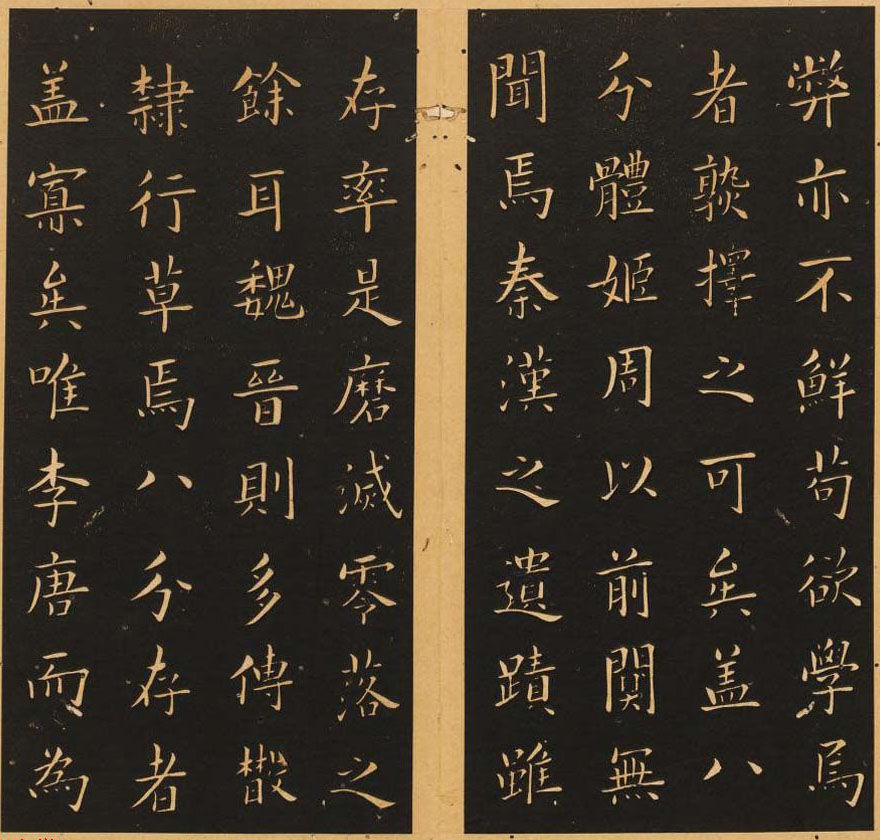 弊亦不鮮苟欲學焉
者孰擇之可矣盖八
分體姬周以前闃無
聞焉秦漢之遺蹟雖
存率是磨滅零落之
餘耳魏晉則多傳散
隸行草焉八分存者
盖寡矣唯李唐而為